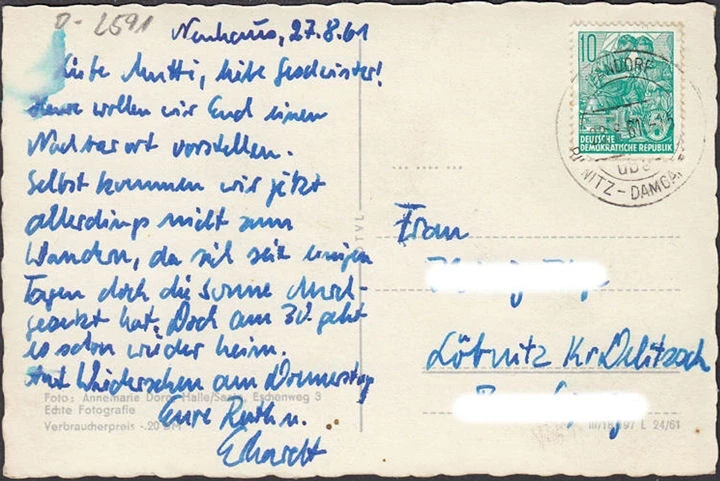 D-2591
Neuhaus, 27.8.61
Liebe Mutti, liebe Geschwister!
Heute wollen wir Euch einen
Nachbarort vorstellen.
Selbst kommen wir jetzt
allerdings nicht zum
Wandern, da sich seit einigen
Tagen doch die Sonne durch-
gesetzt hat. Doch am 30. geht
es schon wieder heim.
Auf Wiedersehen am Donnerstag
Eure Ruth u.
Erhardt
Foto: Annemarie Halle/Saale, Eschenweg 3
Echte Fotografie
Verbraucherpreis -.20 DM
STVL
10
DEUTSCHE
DEMOKRATISCHE REPUBLIK
NDORF
ÜBER
NITZ-DAMGA
Frau
Löbnitz Kr Delitzsch
III/18 197 L 24/61